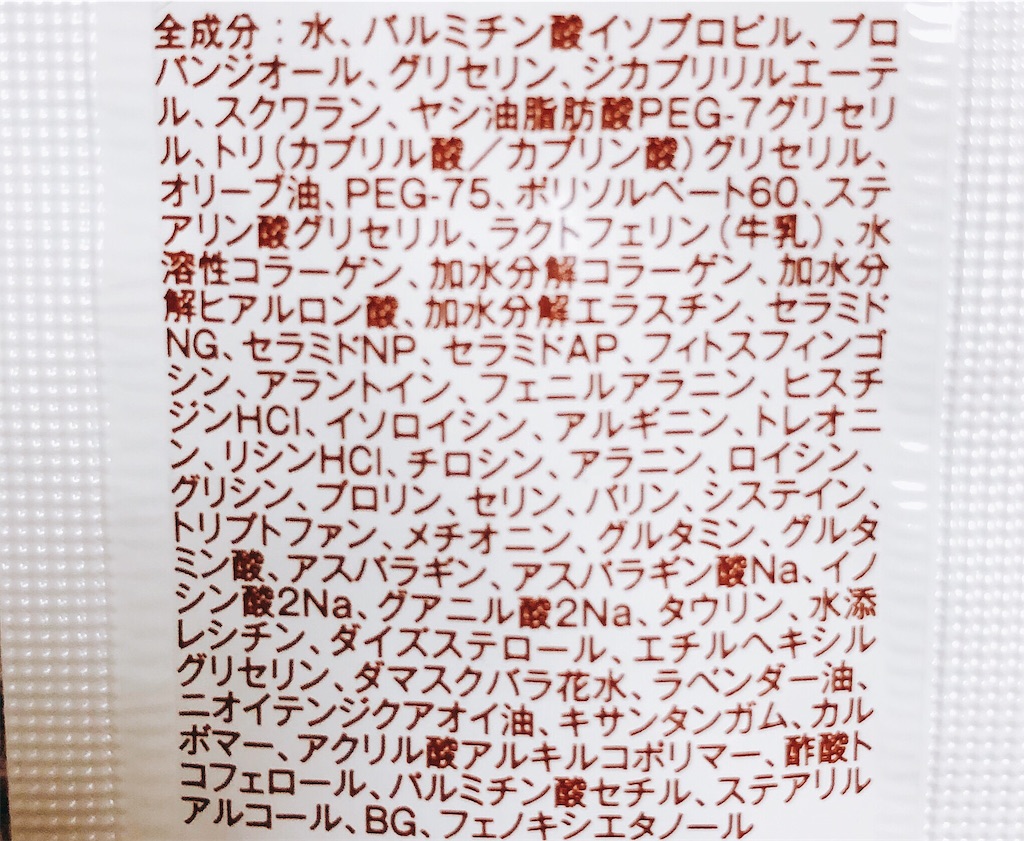 全成分：水、パルミチン酸イソプロピル、プロ
パンジオール、グリセリン、ジカプリリルエーテ
ル、スクワラン、ヤシ油脂肪酸PEG-7グリセリ
ル、トリ（カプリル酸／カプリン酸）グリセリル、
オリーブ油、PEG-75、ポリソルベート60、ステ
アリン酸グリセリル、ラクトフェリン（牛乳）、水
溶性コラーゲン、加水分解コラーゲン、加水分
解ヒアルロン酸、加水分解エラスチン、セラミド
NG、セラミドNP、セラミドAP、フィトスフィンゴ
シン、アラントイン、フェニルアラニン、ヒスチ
ジンHCl、イソロイシン、アルギニン、トレオニ
ン、リシンHCl、チロシン、アラニン、ロイシン、
グリシン、プロリン、セリン、バリン、システイン、
トリプトファン、メチオニン、グルタミン、グルタ
ミン酸、アスパラギン、アスパラギン酸Na、イノ
シン酸2Na、グアニル酸2Na、タウリン、水添
レシチン、ダイズステロール、エチルヘキシル
グリセリン、ダマスクバラ花水、ラベンダー油、
ニオイテンジクアオイ油、キサンタンガム、カル
ボマー、アクリル酸アルキルコポリマー、酢酸ト
コフェロール、パルミチン酸セチル、ステアリル
アルコール、BG、フェノキシエタノール